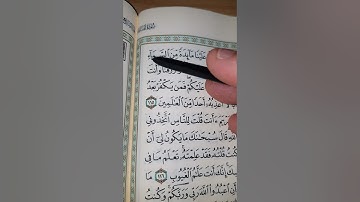 عَلَيْنَا مَآئِدَةً مِّنَ ٱلسَّمَآءِ
وَأَنتَ
عَلَيْكُمْ فَمَن يَكْفُرْ بَعْدُ
أُعَذِّبُهُۥٓ أَحَدًا مِّنَ ٱلْعَٰلَمِينَ ١١٥
مَرْيَمَ ءَأَنتَ قُلْتَ لِلنَّاسِ ٱتَّخِذُونِى
قَالَ سُبْحَٰنَكَ مَا يَكُونُ لِىٓ أَنْ
كُنتُ قُلْتُهُۥ فَقَدْ عَلِمْتَهُۥ تَعْلَمُ مَا فِى
إِنَّكَ أَنتَ عَلَّٰمُ ٱلْغُيُوبِ ١١٦ مَا
أَنِ ٱعْبُدُوا۟ ٱللَّهَ رَبِّى وَرَبَّكُمْ وَكُنتُ